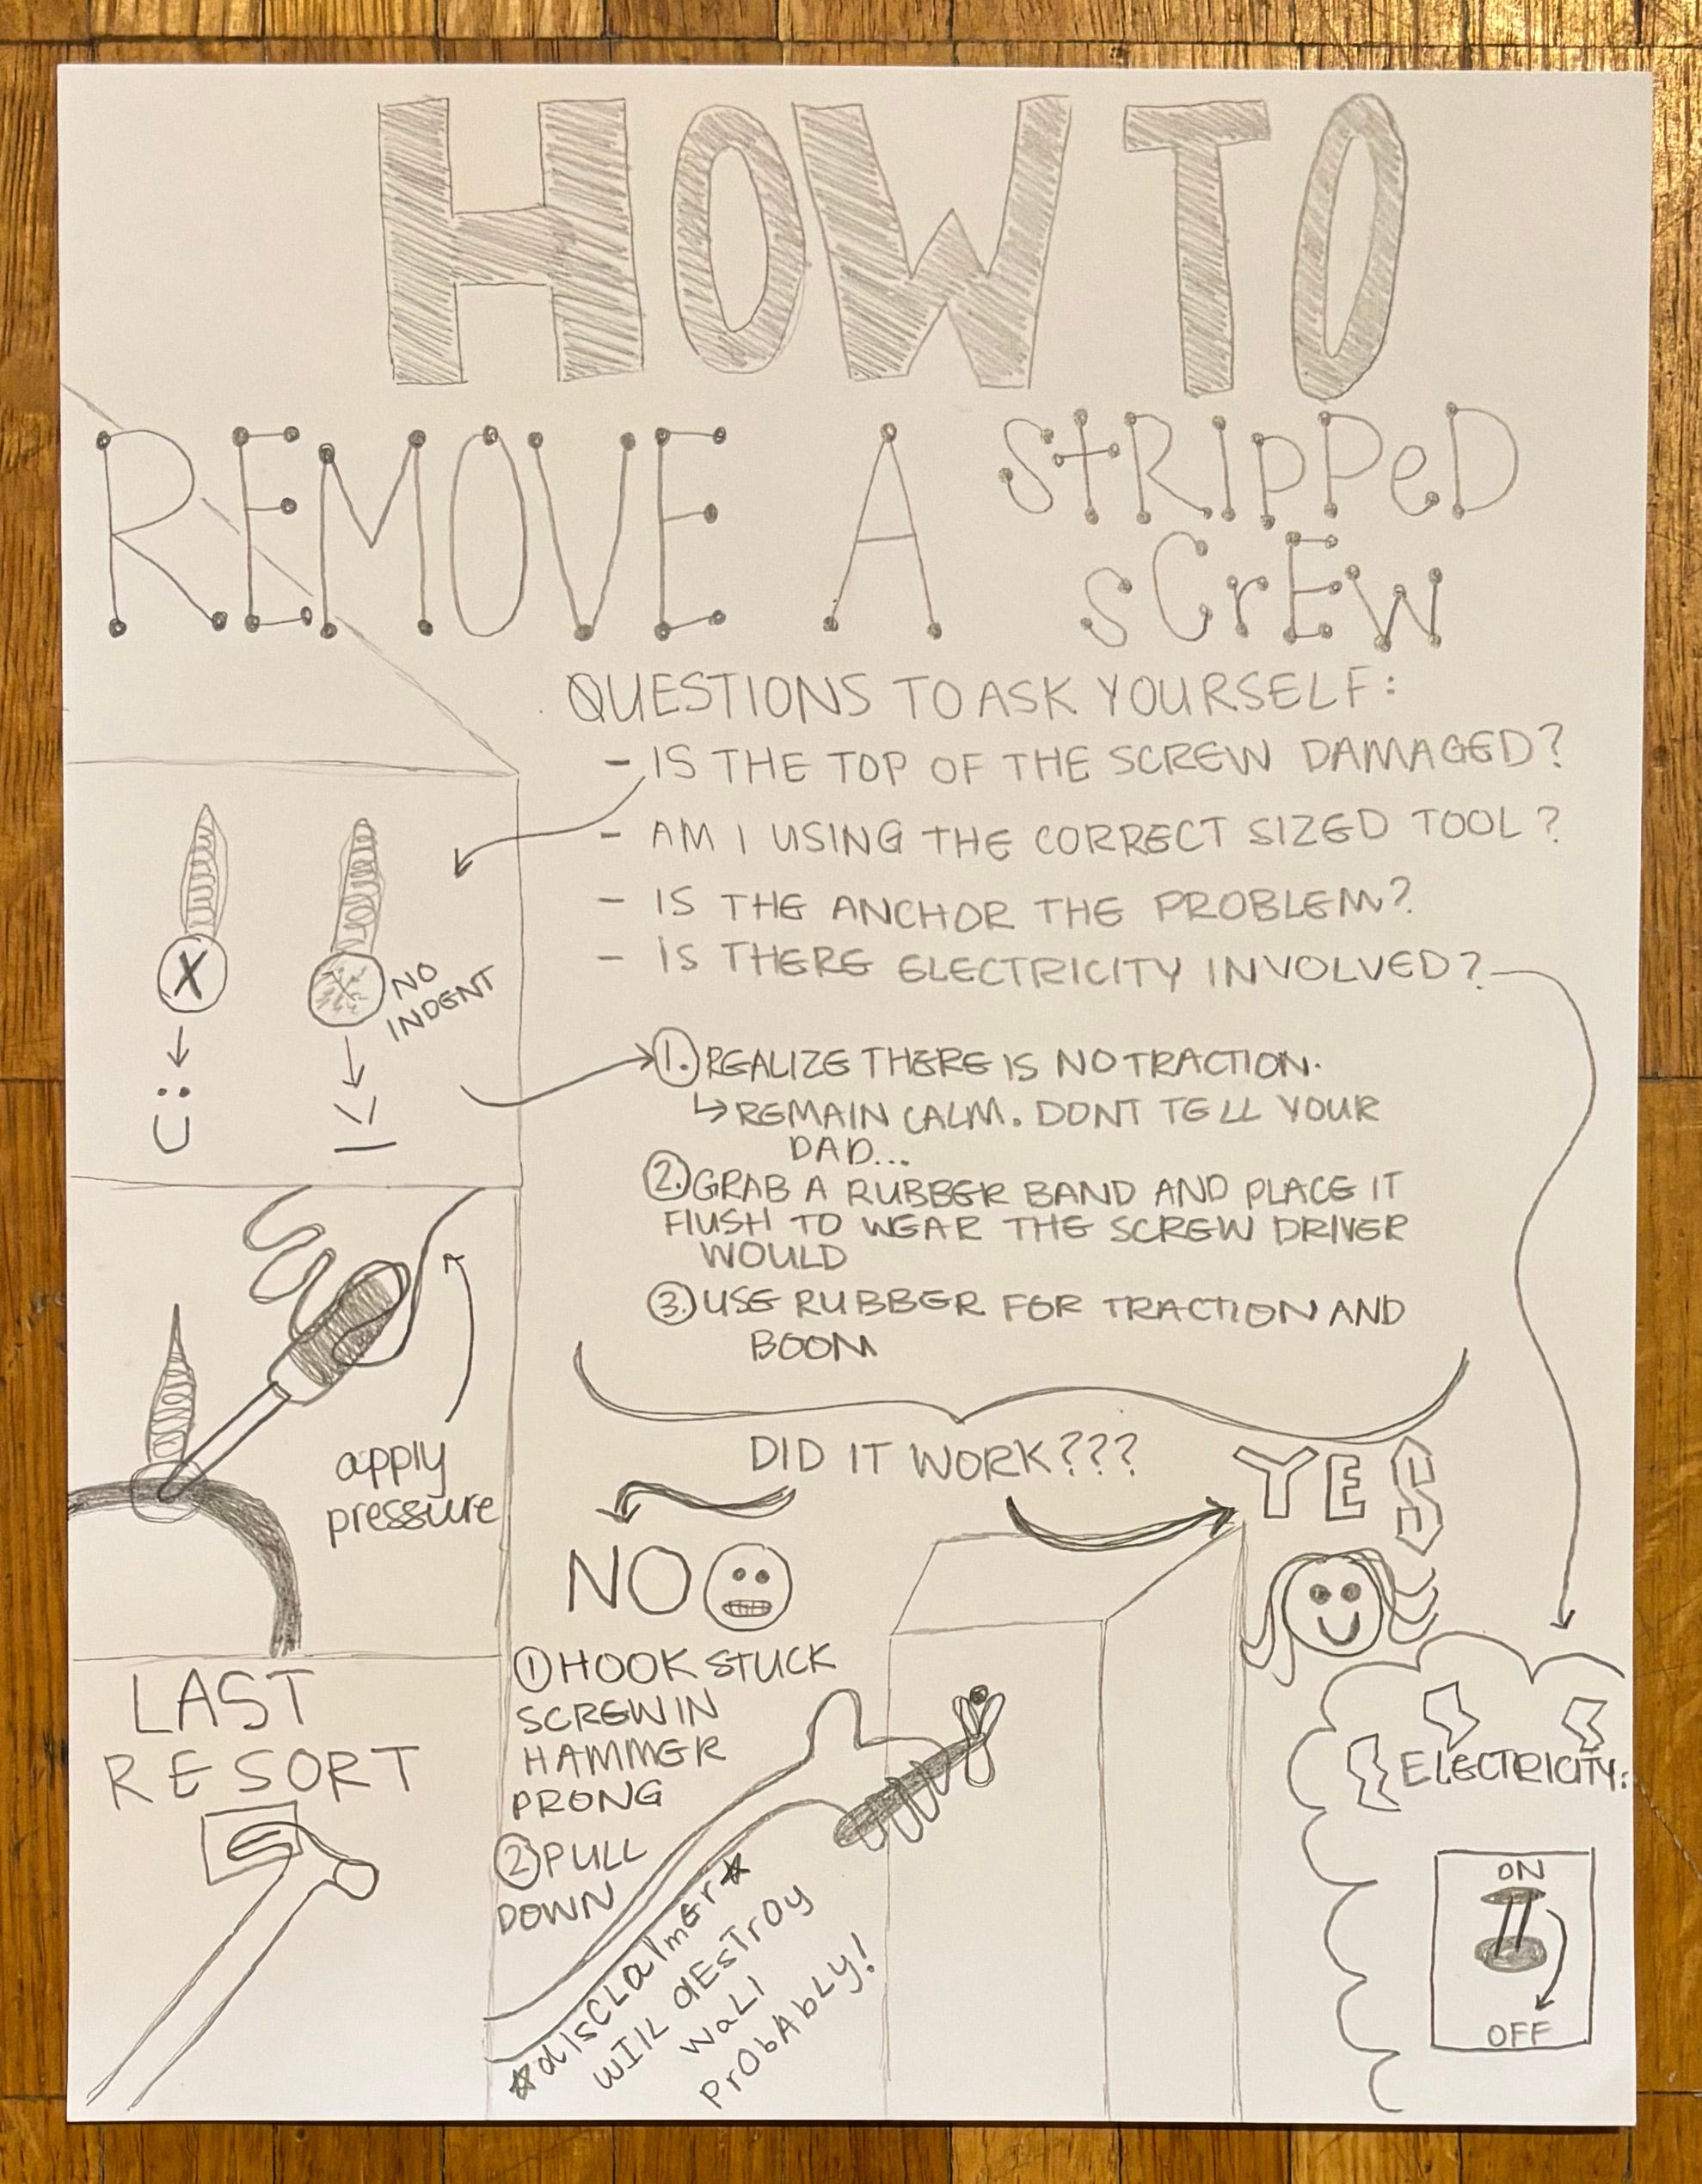 HOW TO
REMOVE A StRIpPeD
sCrEW
QUESTIONS TO ASK YOURSELF:
- IS THE TOP OF THE SCREW DAMAGED?
- AM I USING THE CORRECT SIZED TOOL?
- IS THE ANCHOR THE PROBLEM?
- IS THERE ELECTRICITY INVOLVED?
X
NO
INDENT
1. REALIZE THERE IS NO TRACTION.
↳ REMAIN CALM. DONT TELL YOUR
DAD...
2. GRAB A RUBBER BAND AND PLACE IT
FlUSH TO WEAR THE SCREW DRIVER
WOULD
3. USE RUBBER FOR TRACTION AND
BOOM
apply
pressure
DID IT WORK???
YES
NO
① HOOK STUCK
SCREW IN
HAMMER
PRONG
② PULL
DOWN
LAST
RESORT
☆dIsCLaImEr☆
wIlL dEsTrOy
WaLl
PrObAbLy!
ELECTRICITY:
ON
OFF